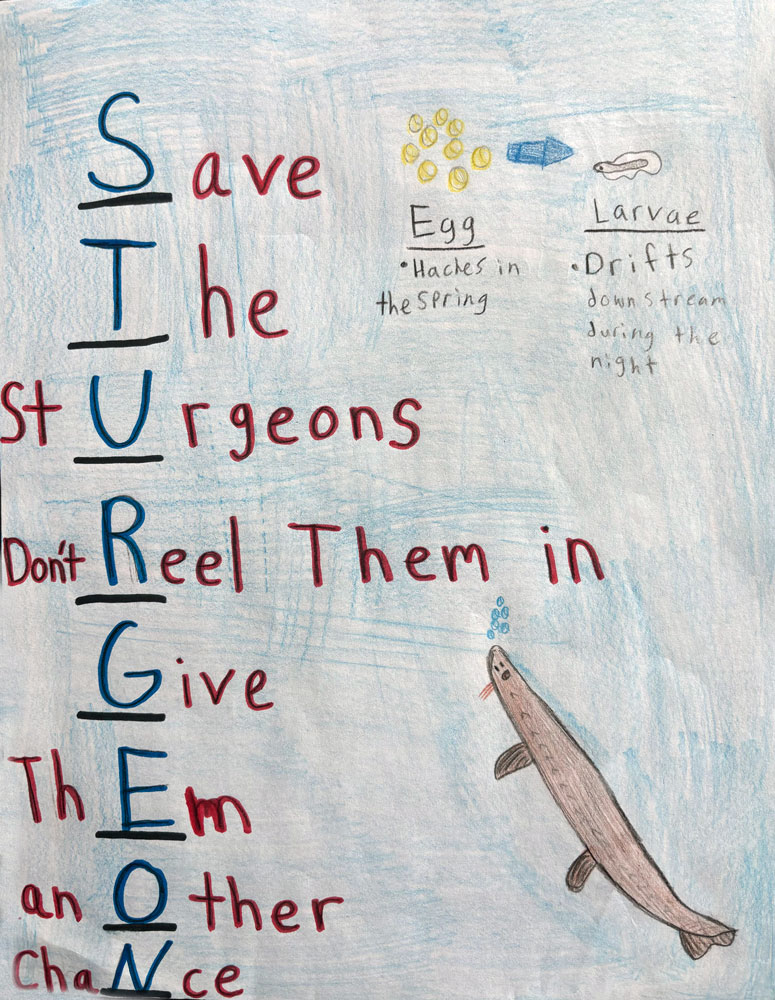 Save
The
Sturgeons
Don't Reel Them in
Give
ThEm
anOther
ChaNce
Egg
• Haches in
the Spring
Larvae
• Drifts
down stream
during the
night